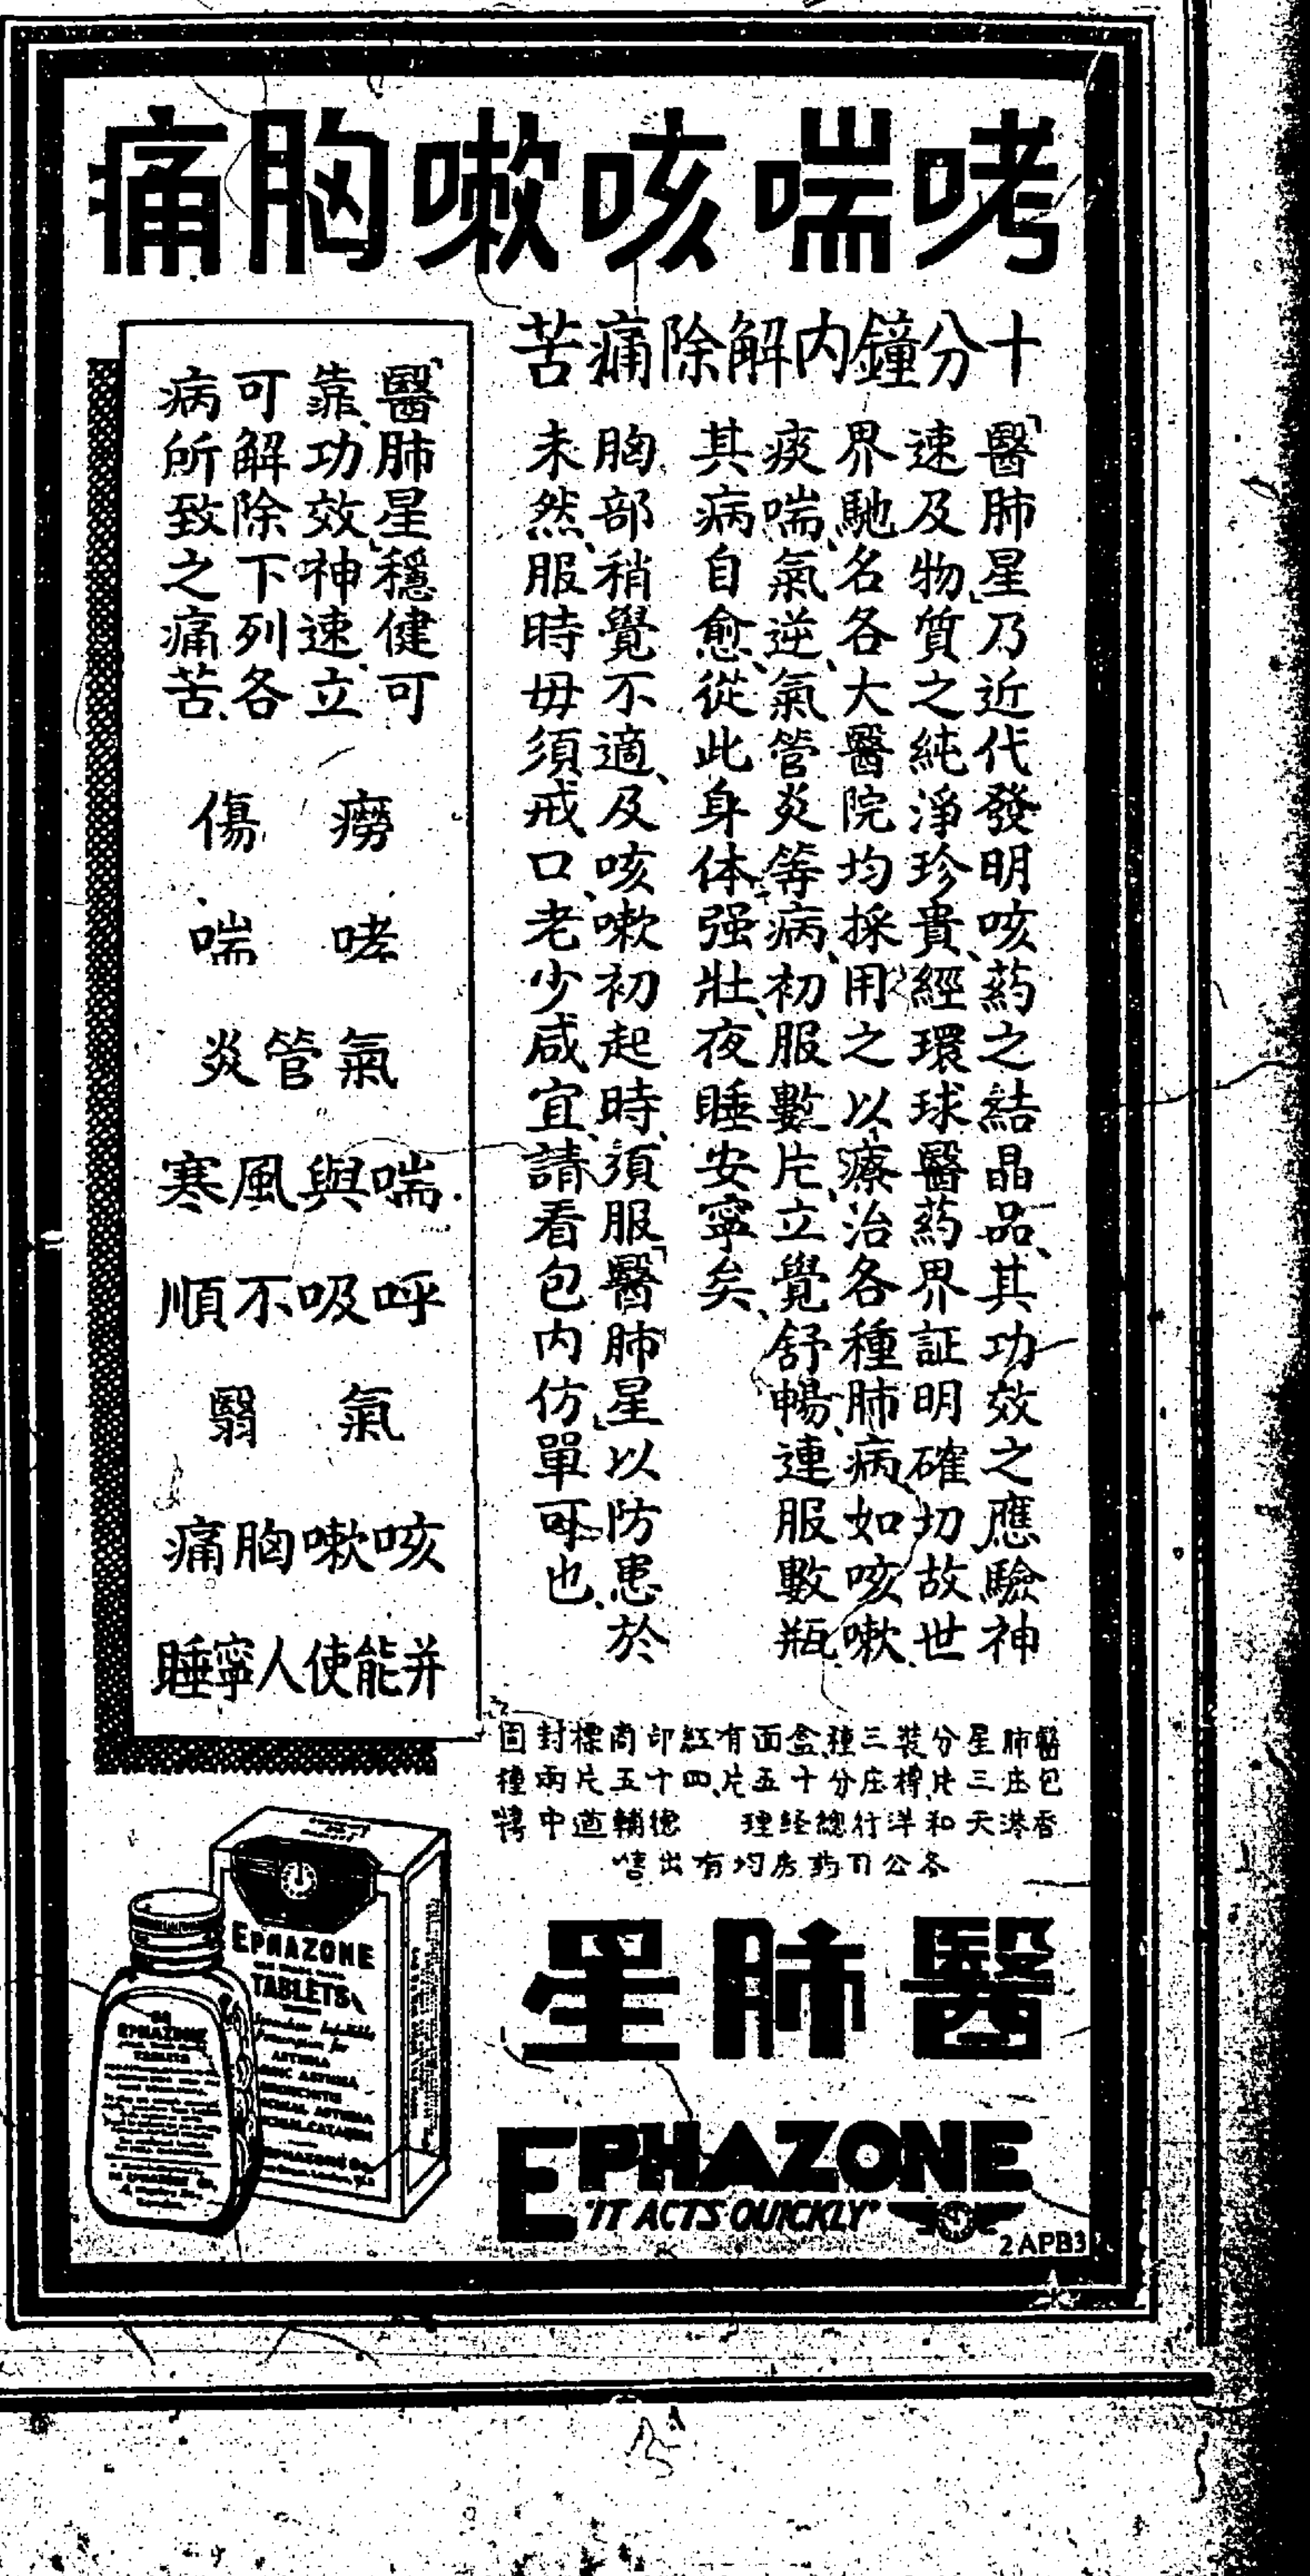 哮喘咳嗽胸痛
十分鐘内解除痛苦
「醫肺星」乃近代發明咳葯之結晶品、其功效之應驗神
速及物質之純淨珍貴、經環球醫葯界証明確切故世
界馳名各大醫院均採用之以療治各種肺病如咳嗽、
痰喘、氣逆、氣管炎等病、初服數片、立覺舒暢、連服數瓶、
其病自愈、從此身体强壯、夜睡安寧矣、
胸部稍覺不適、及咳嗽初起時、須服「醫肺星」以防患於
未然、服時毋須戒口、老少咸宜、請看包内仿單可也、
「醫肺星」穩健可
靠、功效神速、立
可解除下列各
病所致之痛苦、
癆傷
哮喘
氣管炎
喘與風寒
呼吸不順
氣翳
咳嗽胸痛
并能使人寧睡
醫肺星分裝三種、盒面有紅印商標封固
包庄三片、樽庄分十五片、四十五片兩種
香港天和洋行總経理 德輔道中
各公司葯房均有出售
醫肺星
EPHAZONE
"IT ACTS QUICKLY"
2APB3
EPHAZONE
TABLETS
ASTHMA
EPHAZONE
TABLETS